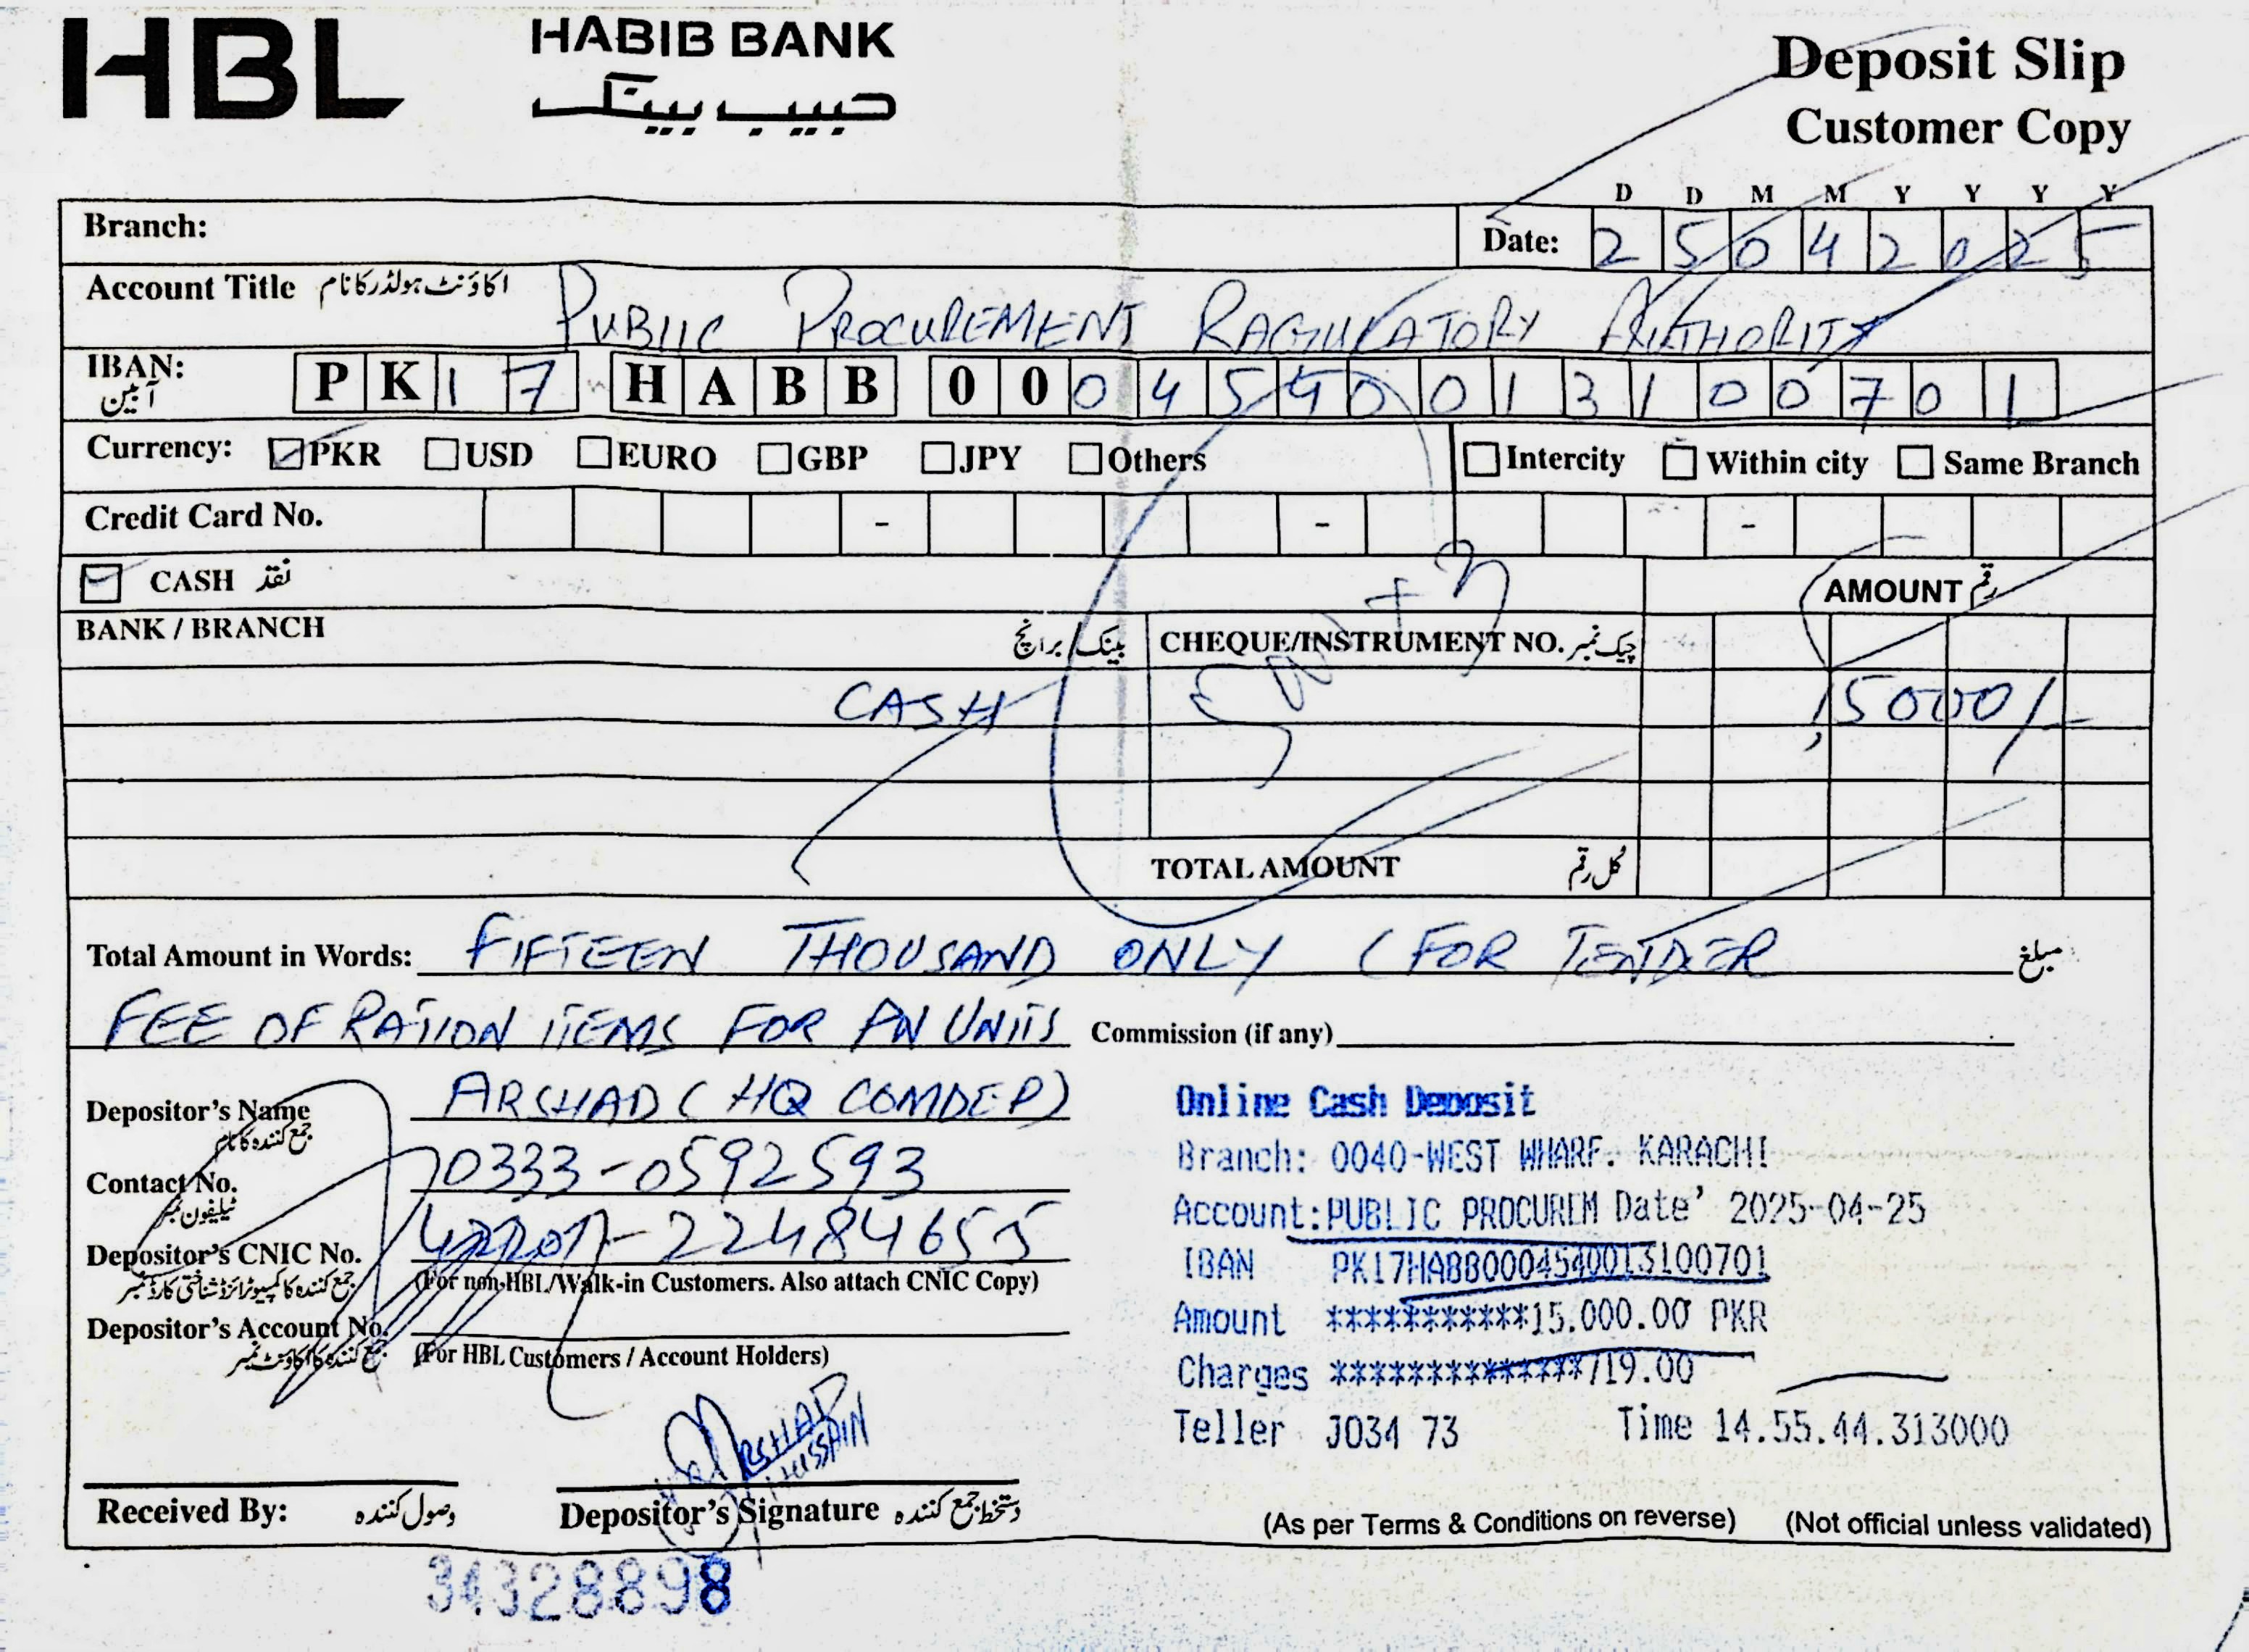 HBL HABIB BANK
حبیب بینک
Deposit Slip
Customer Copy
D D M M Y Y Y Y
Branch: Date: 2 5 0 4 2 0 2 5
Account Title اکاؤنٹ ہولڈر کا نام PUBLIC PROCUREMENT RAGULATORY AUTHORITY
IBAN: آئبین P K 1 7 H A B B 0 0 0 4 5 4 0 0 1 3 1 0 0 7 0 1
Currency: PKR USD EURO GBP JPY Others Intercity Within city Same Branch
Credit Card No. - - -
CASH نقد AMOUNT رقم
BANK / BRANCH بینک / برانچ CHEQUE/INSTRUMENT NO. چیک نمبر
CASH 15000/-
TOTAL AMOUNT کل رقم
Total Amount in Words: FIFTEEN THOUSAND ONLY (FOR TENDER مبلغ
FEE OF RATION ITEMS FOR PN UNITS Commission (if any)
Depositor's Name ARSHAD (HQ COMDEP)
جمع کنندہ کا نام
Contact No. 0333-0592593
ٹیلیفون نمبر
Depositor's CNIC No. -22484655
جمع کنندہ کا کمپیوٹرائزڈ شناختی کارڈ نمبر (For non-HBL/Walk-in Customers. Also attach CNIC Copy)
Depositor's Account No.
جمع کنندہ کا اکاؤنٹ نمبر (For HBL Customers / Account Holders)
Online Cash Deposit
Branch: 0040-WEST WHARF. KARACHI
Account:PUBLIC PROCUREM Date' 2025-04-25
IBAN PK17HABB0004540013100701
Amount ***********15.000.00 PKR
Charges **************719.00
Teller J034 73 Time 14.55.44.313000
ARSHAD
HUSSAIN
Received By: وصول کنندہ Depositor's Signature دستخط جمع کنندہ
(As per Terms & Conditions on reverse) (Not official unless validated)
34328898